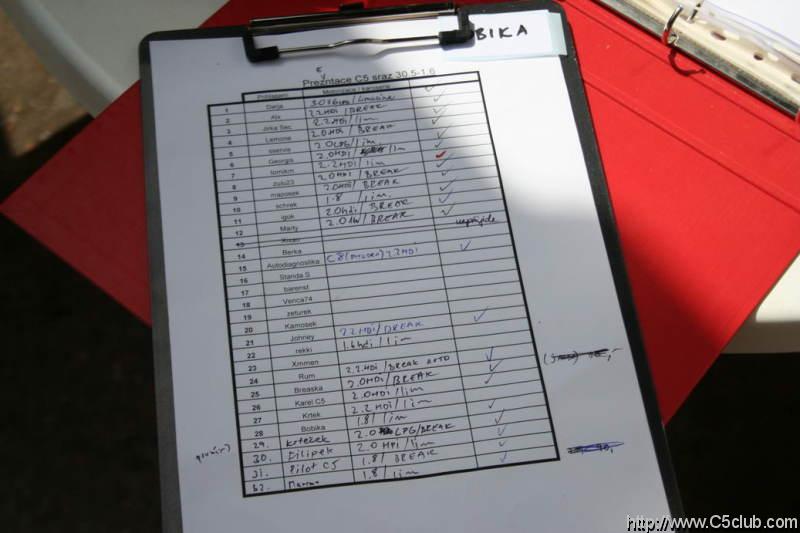 BIKA
e
Prezntace C5 sraz 30.5-1.6
Přihlášení Motorizace / karoserie
1 Darja 3.0 V6 / Limusine
2 Alx 2.2 HDI / BREAK
3 Jirka Sec 2.2 HDI / lim
4 Lemone 2.0 HDI / BREAK
5 2.0 LPG / lim
6 Georgis 2.0 HDI / lim
7 tomikm 2.2 HDI / lim
8 zubi23 2.0 HDI / BREAK
9 mazosek 2.0 HDI / BREAK
10 schrek 1.8 / lim.
11 iguk 2.0 hdi / BREAK
12 Marty 2.0 / BREAK
13
14 Berka
15 Autodiagnostika C8 2.2 HDI
16 Standa.S
17 barenst
18 Venca74
19 zeturek
20 Kamosek
21 Johney 2.2 HDI / BREAK
22 rekki 1.6 hdi / lim
23 Xmmen
24 Rum 2.2 HDI / BREAK AUTO
25 Breaska 2.0 HDI / BREAK
26 Karel C5 2.0 HDI / lim
27 Krtek 2.2 HDI / lim
28 Bobika 1.8 / lim
29. krteček 2.0 LPG / BREAK
30. Filipek 2.0 HDI / lim
31. Pilot C5 1.8 / BREAK
32. 1.8 / lim
http://www.C5club.com